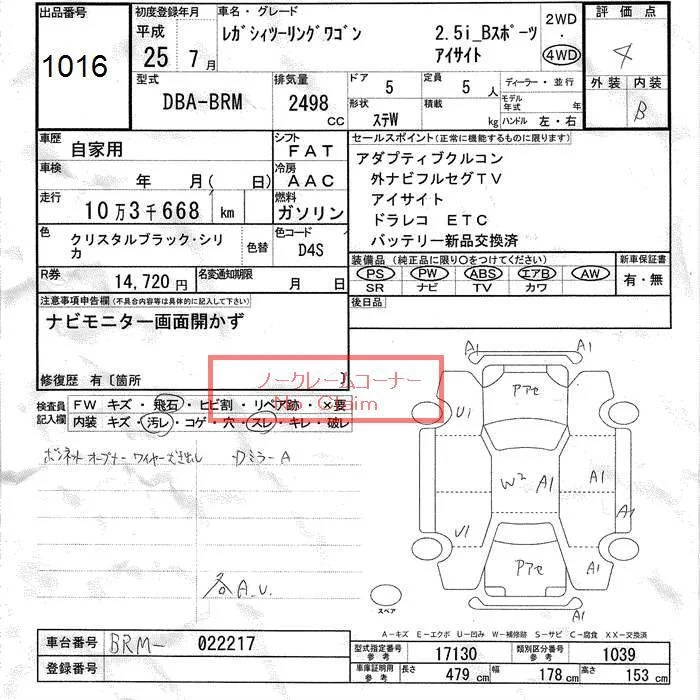 出品番号 初度登録年月 車名・グレード 2WD 評価点
1016 平成 25 7月 レガシィツーリングワゴン 2.5i_Bスポーツ アイサイト ・ 4WD 4
型式 排気量 ドア 5 定員 5 人 ディーラー・並行 外装 内装
DBA-BRM 2498 CC 形状 ステW 積載 kg モデル年式 年 ハンドル 左・右 B
車歴 自家用 シフト FAT セールスポイント(正常に機能するものに限ります)
車検 年 月( 日) 冷房 AAC アダプティブクルコン
外ナビフルセグTV
走行 10万3千668 km 燃料 ガソリン アイサイト
ドラレコ ETC
色 クリスタルブラック・シリカ 色替 色コード D4S バッテリー新品交換済
R券 14,720円 名変通知期限 月 日 装備品(純正品に限り○をつけてください) 新車保証書
PS PW ABS エアB AW 有・無
SR ナビ TV カワ
注意事項申告欄(不具合内容等は具体的に記入して下さい) 後日品
ナビモニター画面開かず
修復歴 有〔箇所 〕
ノークレームコーナー
No Claim
検査員記入欄 FW キズ・飛石・ヒビ割・リペア跡・×要
内装 キズ・汚レ・コゲ・穴・スレ・キレ・破レ
ボンネットオープナー ワイヤー DミラーA
各A.U.
A1 A1
Pアセ
U1
W2 A1 A1
A1
U1 Pアセ A1
A1
スペア
A-キズ E-エクボ U-凹み W-補修跡 S-サビ C-腐食 XX-交換済
車台番号 BRM- 022217 型式指定番号 参考 17130 類別区分番号 参考 1039
登録番号 車庫証明用 参考 長さ 479 cm 幅 178 cm 高さ 153 cm